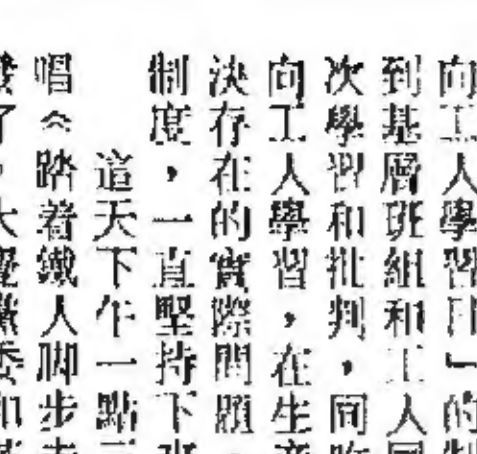 向工人學習日」的制
到基層班組和工人同
次學習和批判，同
向工人學習，在生產
決存在的實際問題，
制度，一直堅持下來
這天下午一點
唱《踏着鐵人脚步走
了，大慶黨委和